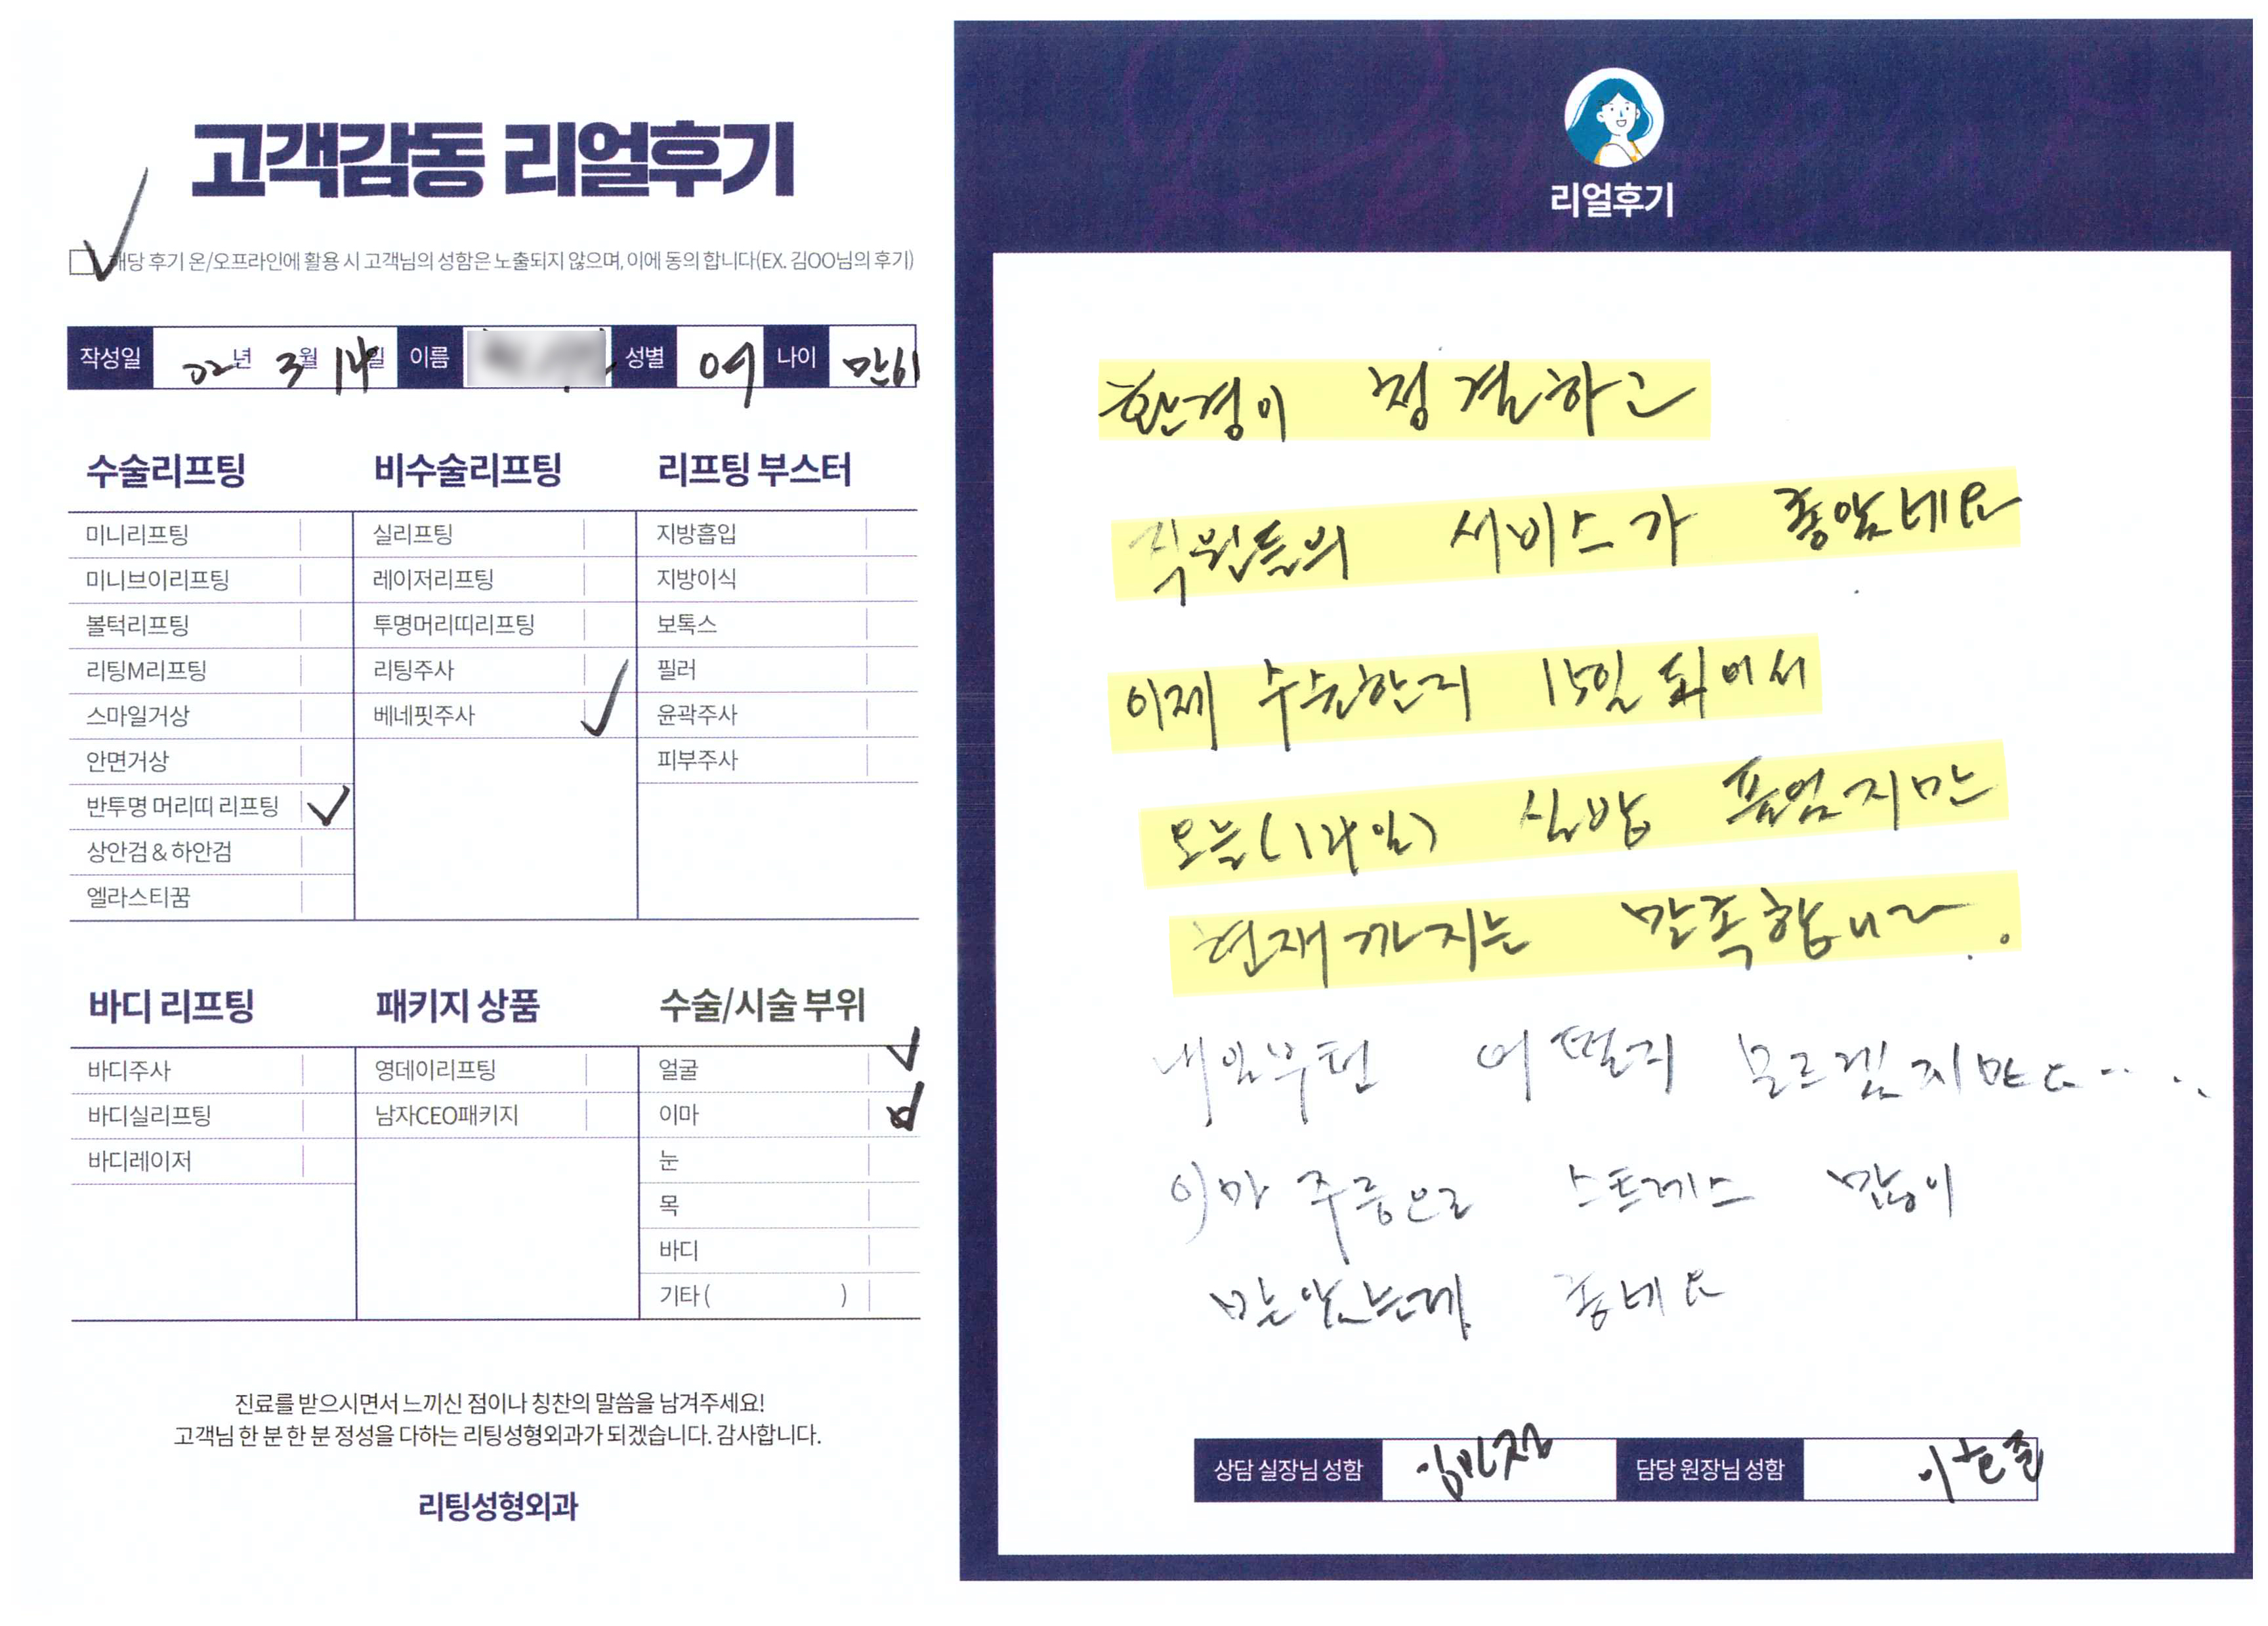 고객감동 리얼후기
해당 후기 온/오프라인에 활용 시 고객님의 성함은 노출되지 않으며, 이에 동의 합니다(EX. 김OO님의 후기)
작성일 22년 3월 14일 이름 성별 여 나이 만61
수술리프팅
미니리프팅
미니브이리프팅
볼턱리프팅
리팅M리프팅
스마일거상
안면거상
반투명 머리띠 리프팅
상안검 & 하안검
엘라스티꿈
비수술리프팅
실리프팅
레이저리프팅
투명머리띠리프팅
리팅주사
베네핏주사
리프팅 부스터
지방흡입
지방이식
보톡스
필러
윤곽주사
피부주사
바디 리프팅
바디주사
바디실리프팅
바디레이저
패키지 상품
영데이리프팅
남자CEO패키지
수술/시술 부위
얼굴
이마
눈
목
바디
기타 ( )
진료를 받으시면서 느끼신 점이나 칭찬의 말씀을 남겨주세요!
고객님 한 분 한 분 정성을 다하는 리팅성형외과가 되겠습니다. 감사합니다.
리팅성형외과
리얼후기
환경이 청결하고
직원들의 서비스가 좋았네요
이제 수술한지 15일 되어서
오늘(14일) 실밥 풀었지만
현재까지는 만족합니다.
내일부턴 어떨지 모르겠지만도.....
이마 주름으로 스트레스 많이
받았는데 좋네요
상담 실장님 성함 담당 원장님 성함